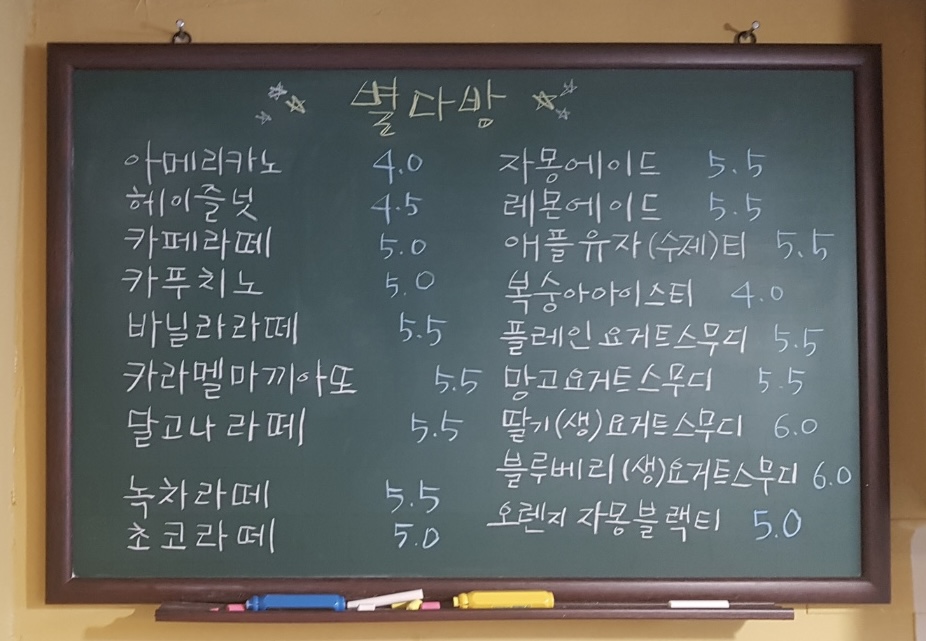 별다방
아메리카노 4.0
헤이즐넛 4.5
카페라떼 5.0
카푸치노 5.0
바닐라라떼 5.5
카라멜마끼아또 5.5
달고나라떼 5.5
녹차라떼 5.5
초코라떼 5.0
자몽에이드 5.5
레몬에이드 5.5
애플유자(수제)티 5.5
복숭아아이스티 4.0
플레인요거트스무디 5.5
망고요거트스무디 5.5
딸기(생)요거트스무디 6.0
블루베리(생)요거트스무디 6.0
오렌지자몽블랙티 5.0